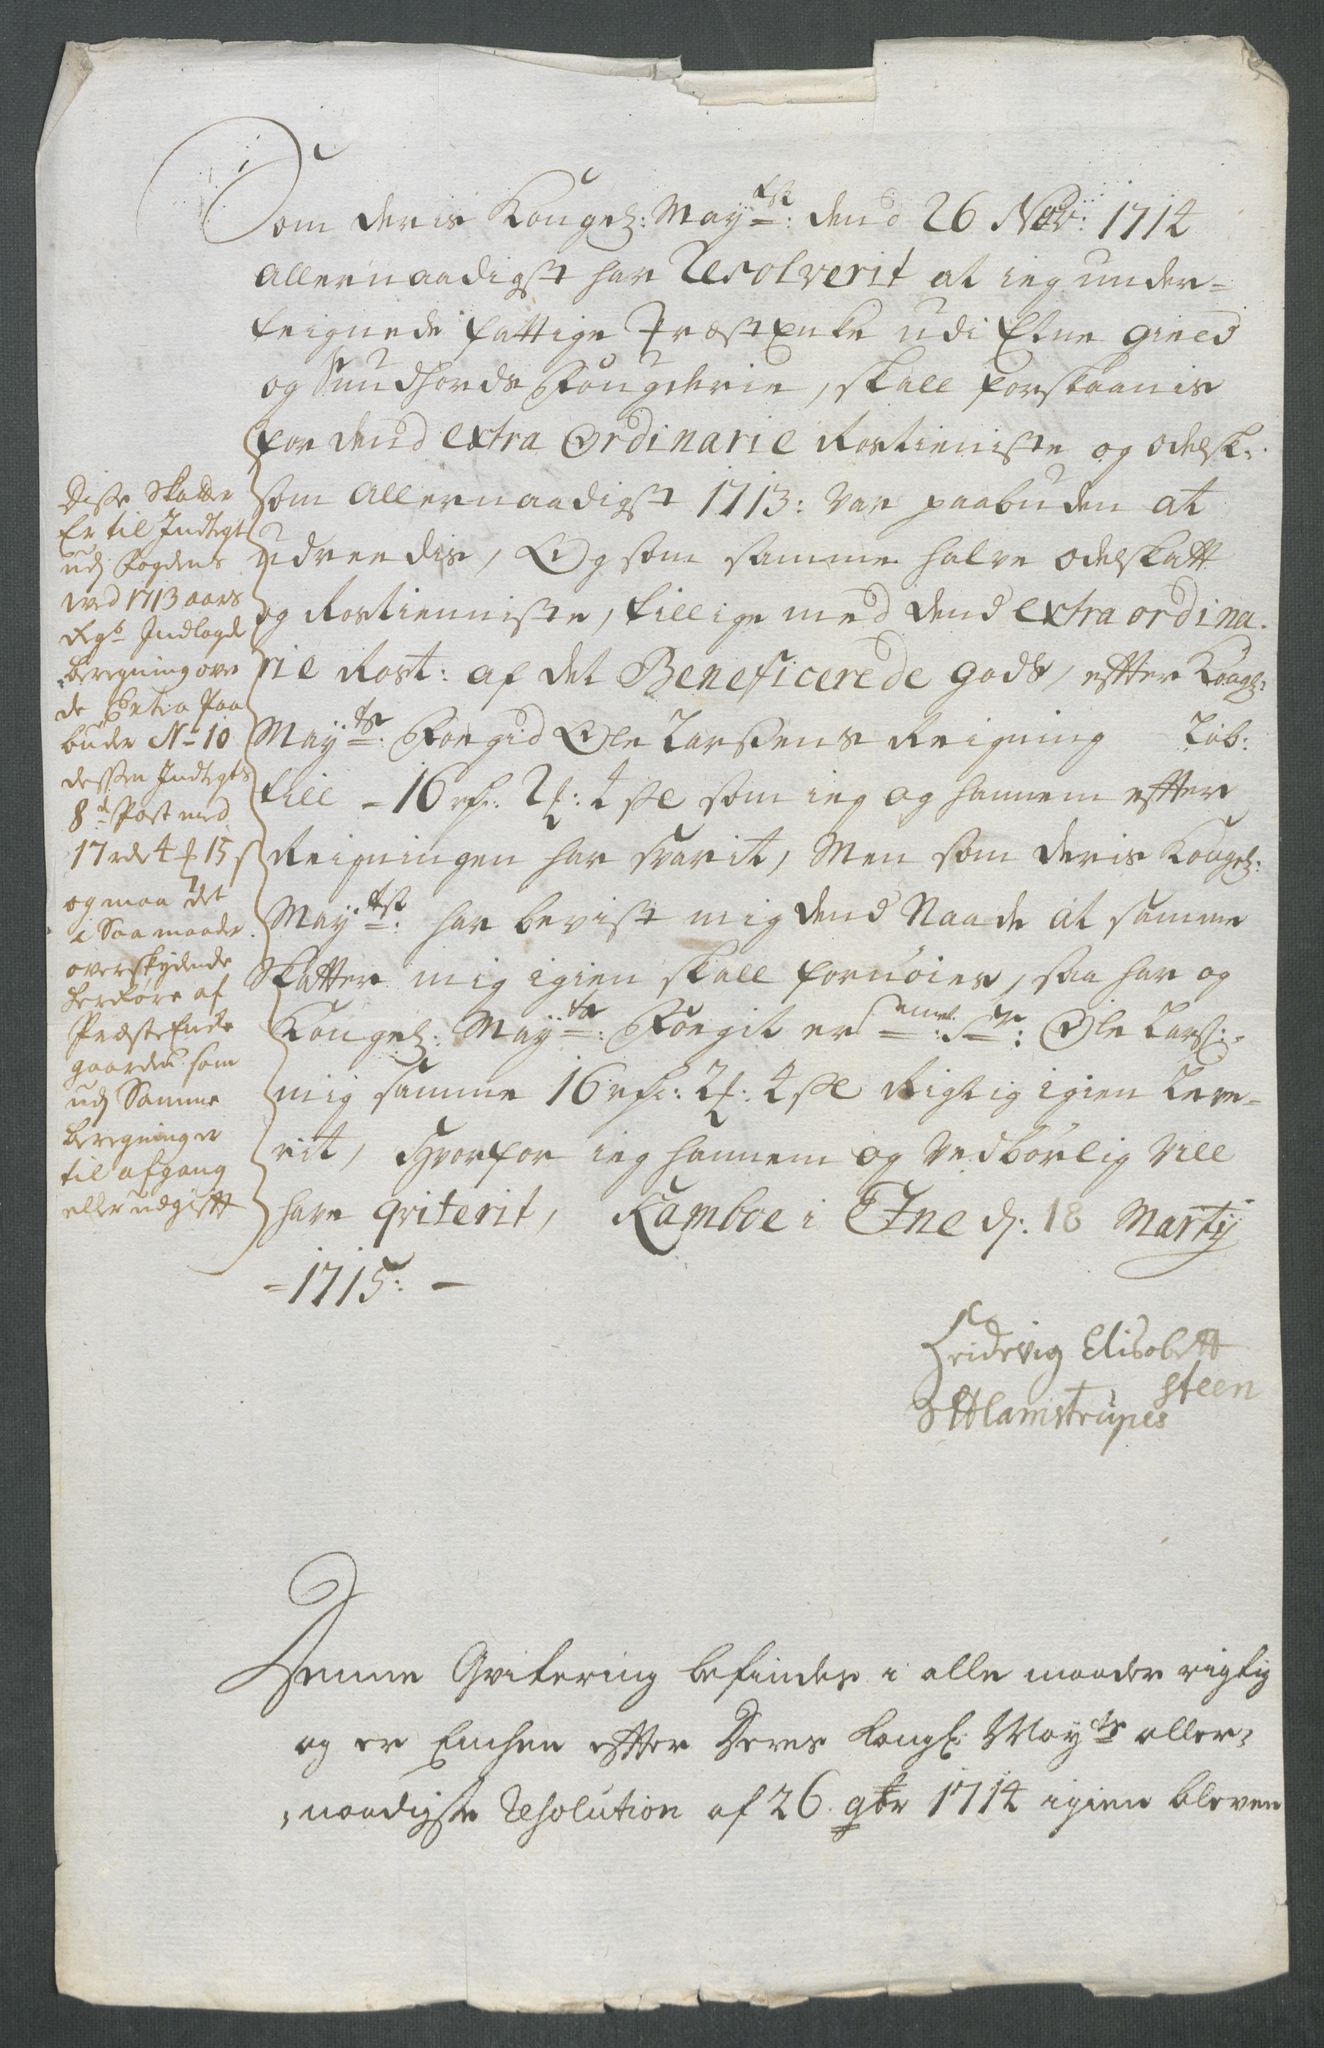 Som deris Kongel: May:tst: dend 26 Nov: 1714
allernaadigst har Resolverit at ieg under-
teignede fattige PræstEnke udi Etne gield
og Sundhords Fougderie, skall forskaanis
for dend extra Ordinarie Rostieniste og odelsk:
som allernaadigst 1713: var paabuden at
udreedis, Og som samme halve odelskatt
og Rostienniste, tillige med dend extra ordina-
rie Rost: af det Beneficerede gods, efter Kongl:
May:ts: Foegid Ole Larssens Reigning Løb:
till - 16 rdr: 2 4 s som ieg og hannem efter
Reigningen har svarit, Men som deris Kongel:
May:tst: har bevist mig dend Naade at samme
Skatter mig igien skall fornøies, saa har og
Kongel: May:ts: Foegit er Sr: Ole Larss:
mig samme 16 rdr: 2 4 s Rigtig igien Leve-
rit, Hvorfor ieg hannem og vedbørlig vill
have qviterit, Ramboe i Etne d: 18 Martij
- 1715: -
Heidevig Elisabett
steen
Sl Hamstrupes
Disse Skatter
Er til Indtegt
udj Fogdens
ved 1713 aars
Regb Indlagde
beregning over
de Extra Paa
buder No 10
dessen Indtegts
8d Post med
17 rdr 4 15 s
og maa det
i Saa maade
overskydende
herføre af
PræsteEnke
gaarden som
udj Samme
beregning er
til afgang
eller udgift
Denne Qvitering befindes i alle maader rigtig
og er Enchen efter Deres Kongl: Mayts aller-
naadigste Resolution af 26. 9br 1714 igien bleven